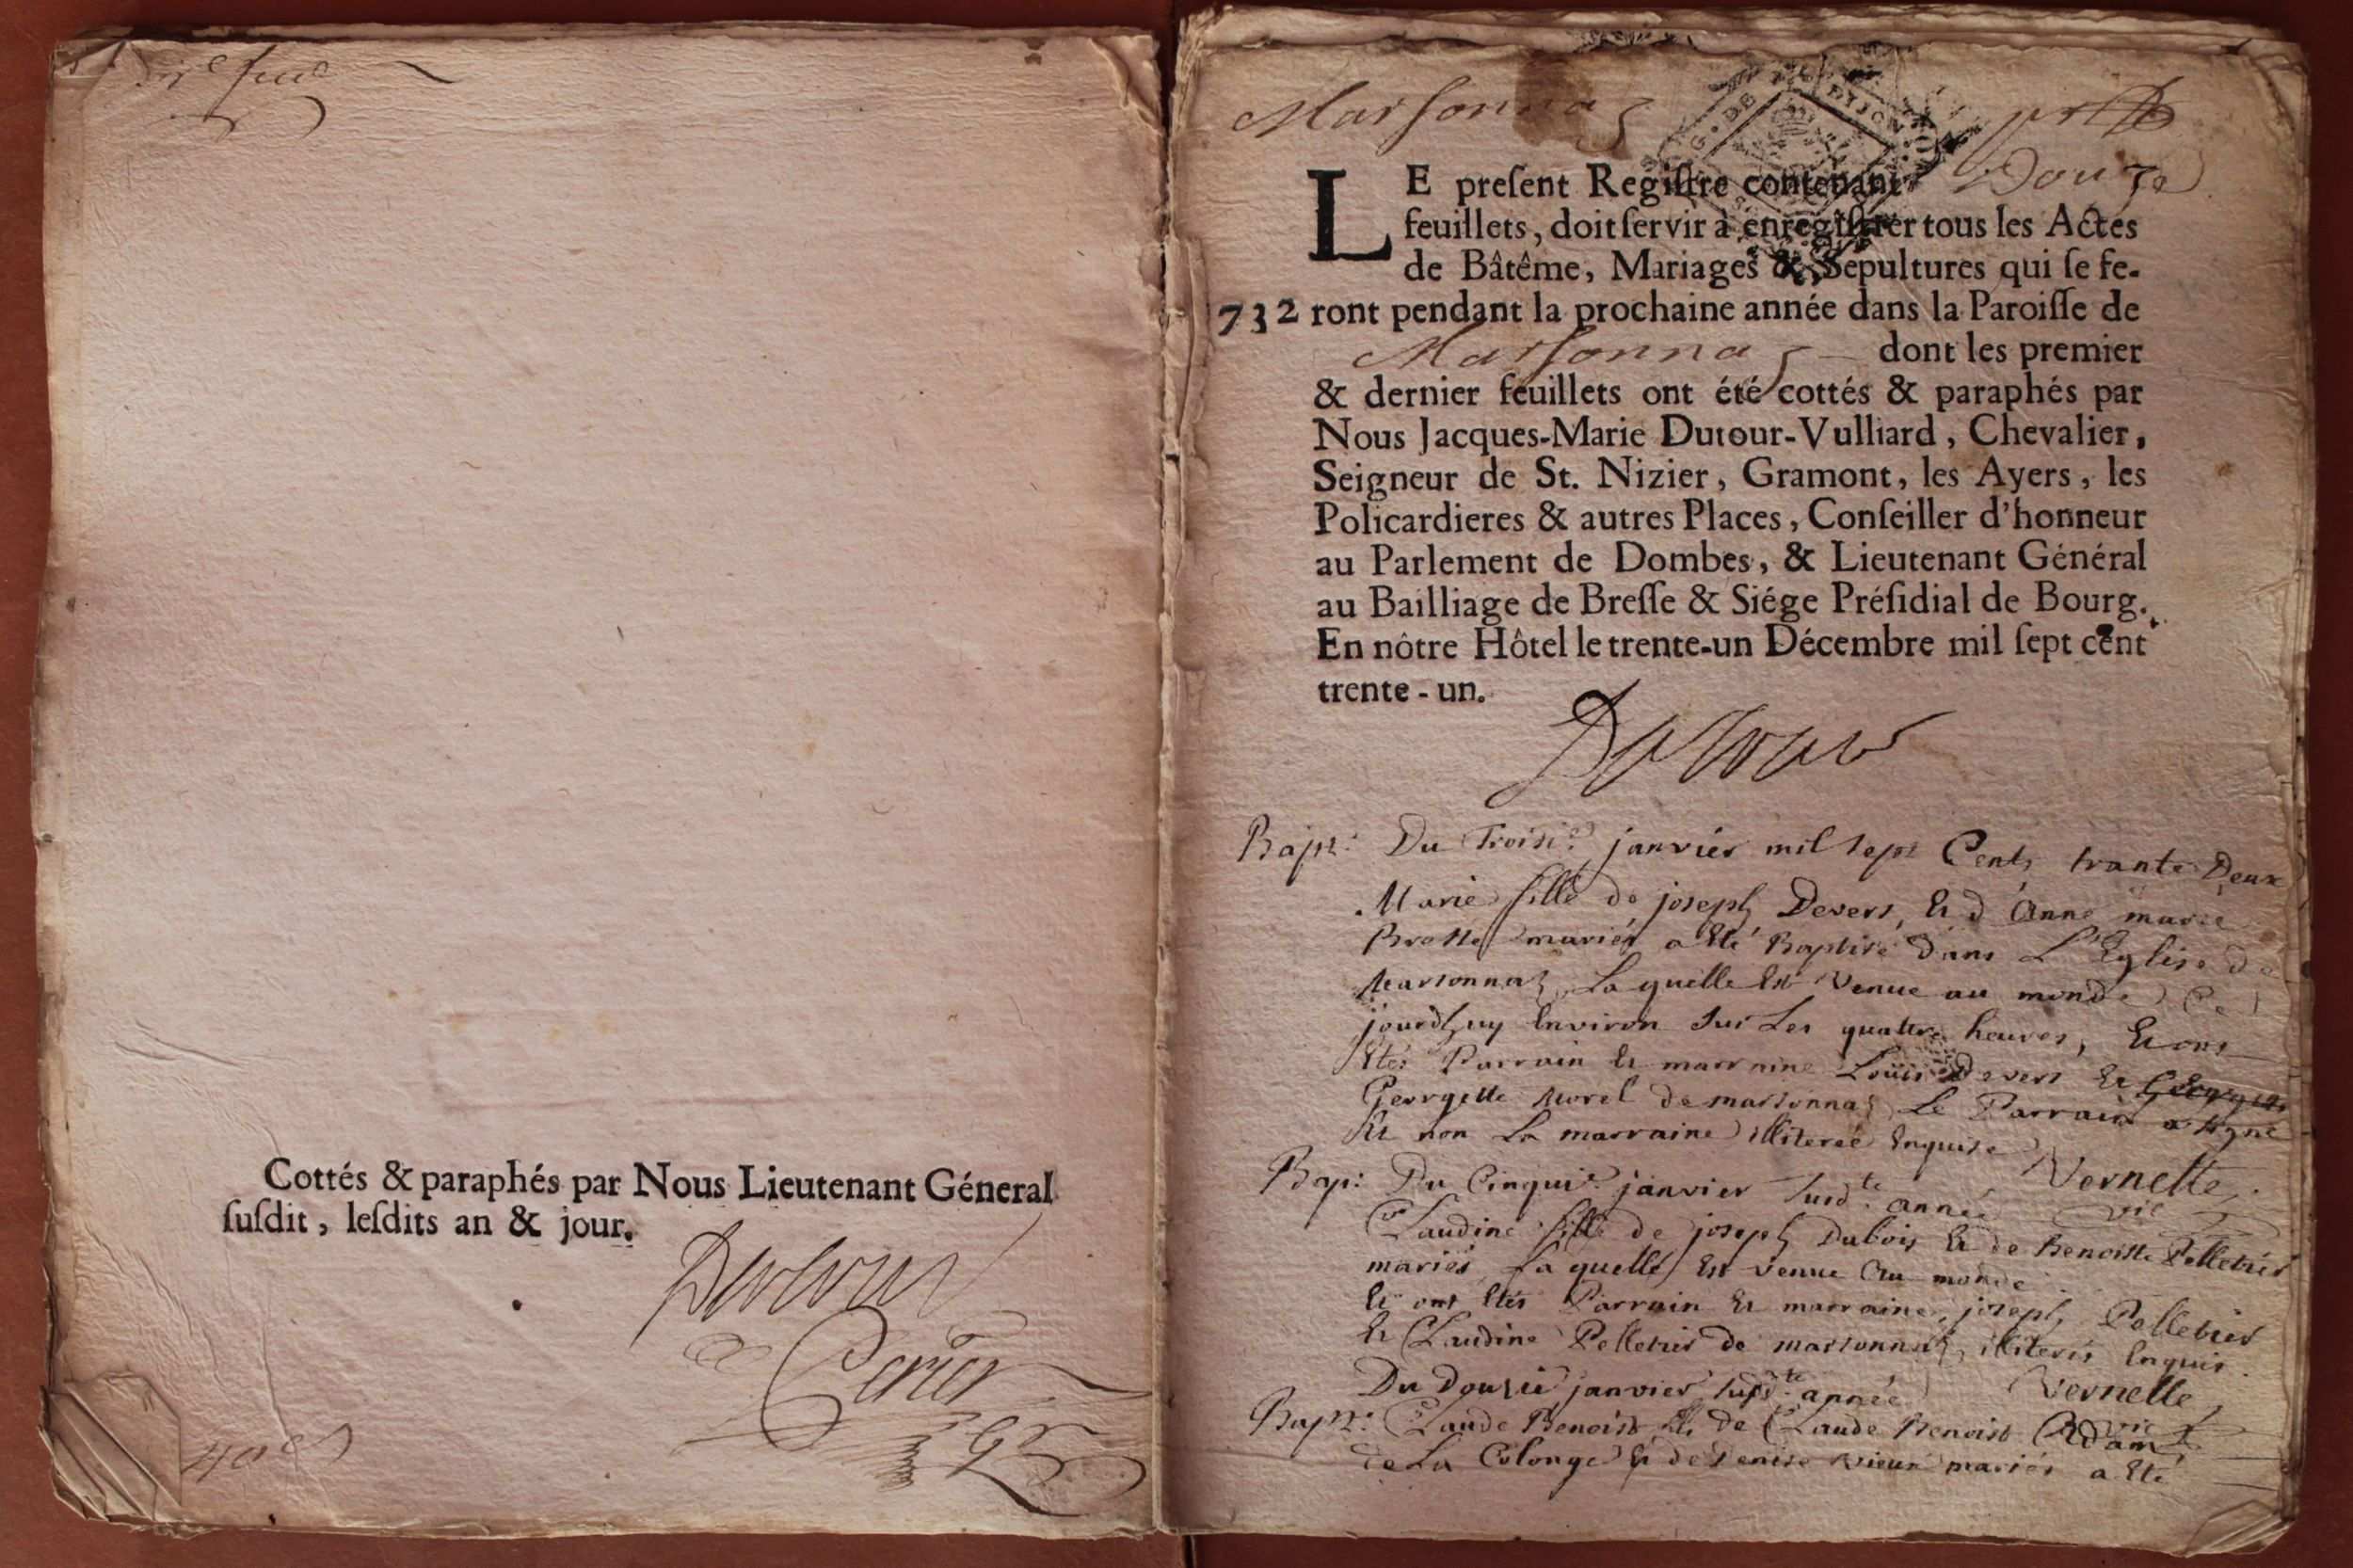 Cottés & paraphés par Nous Lieutenant Géneral
ſuſdit, leſdits an & jour.
Dutour
Perier
Marsonnaz
G. DE DIJON
LE preſent Regiſtre contenant Douze
feuillets, doit ſervir à enregiſtrer tous les Actes
de Bâtême, Mariages & Sepultures qui ſe fe-
732 ront pendant la prochaine année dans la Paroiſſe de
Marsonnaz dont les premier
& dernier feuillets ont été cottés & paraphés par
Nous Jacques-Marie Dutour-Vulliard, Chevalier,
Seigneur de St. Nizier, Gramont, les Ayers, les
Policardieres & autres Places, Conſeiller d'honneur
au Parlement de Dombes, & Lieutenant Général
au Bailliage de Breſſe & Siége Préſidial de Bourg.
En nôtre Hôtel le trente-un Décembre mil ſept cent
trente-un.
Dutour
Bapt: Du Troisi.e janvier mil sept Cents trante Deux
Marie fille de joseph Devers, Et d'Anne marie
Brosse mariés a Eté Baptisé dans L'Eglise de
Marsonnaz, La quelle Est venue au monde Ce
jourdhuy Environ Sur Les quattre heures, Et ont
Etés Parrain Et marraine Loüis Devers Et
Georgette Morel de marsonnaz Le Parrain a signé
Et non La marraine illiterée Enquise
Vernette
vic
Bap: Du Cinqui.e janvier susd.te année
Claudine fille de joseph Dubois Et de Benoiste Pelletier
mariés, La quelle Est venue Au monde
Et ont Etés Parrain Et marraine, joseph Pelletier
Et Claudine Pelletier de marsonnaz, illiterés Enquis.
Vernette
vic
Du Douzie janvier susd.te année
Bapt: Claude Benoist fils de Claude Benoist Adam
de La Colonge Et de Denise vieux mariés a Eté